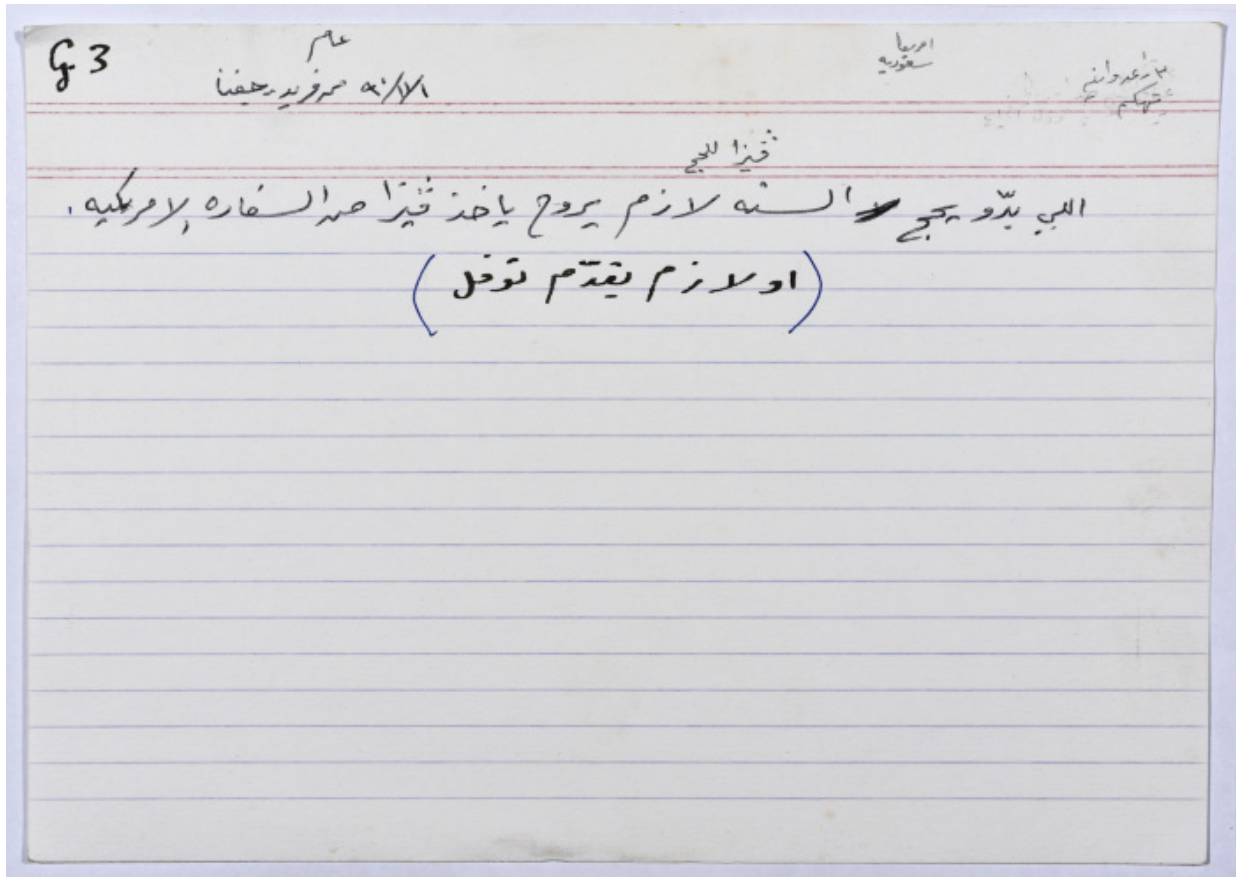 G 3
عام
امريكا
سعوديه
فيزا للحج
اللي بدّو يحج السنه لازم يروح ياخذ ڤيزا من السفاره الامريكيه.
(او لازم يقدّم توفل)